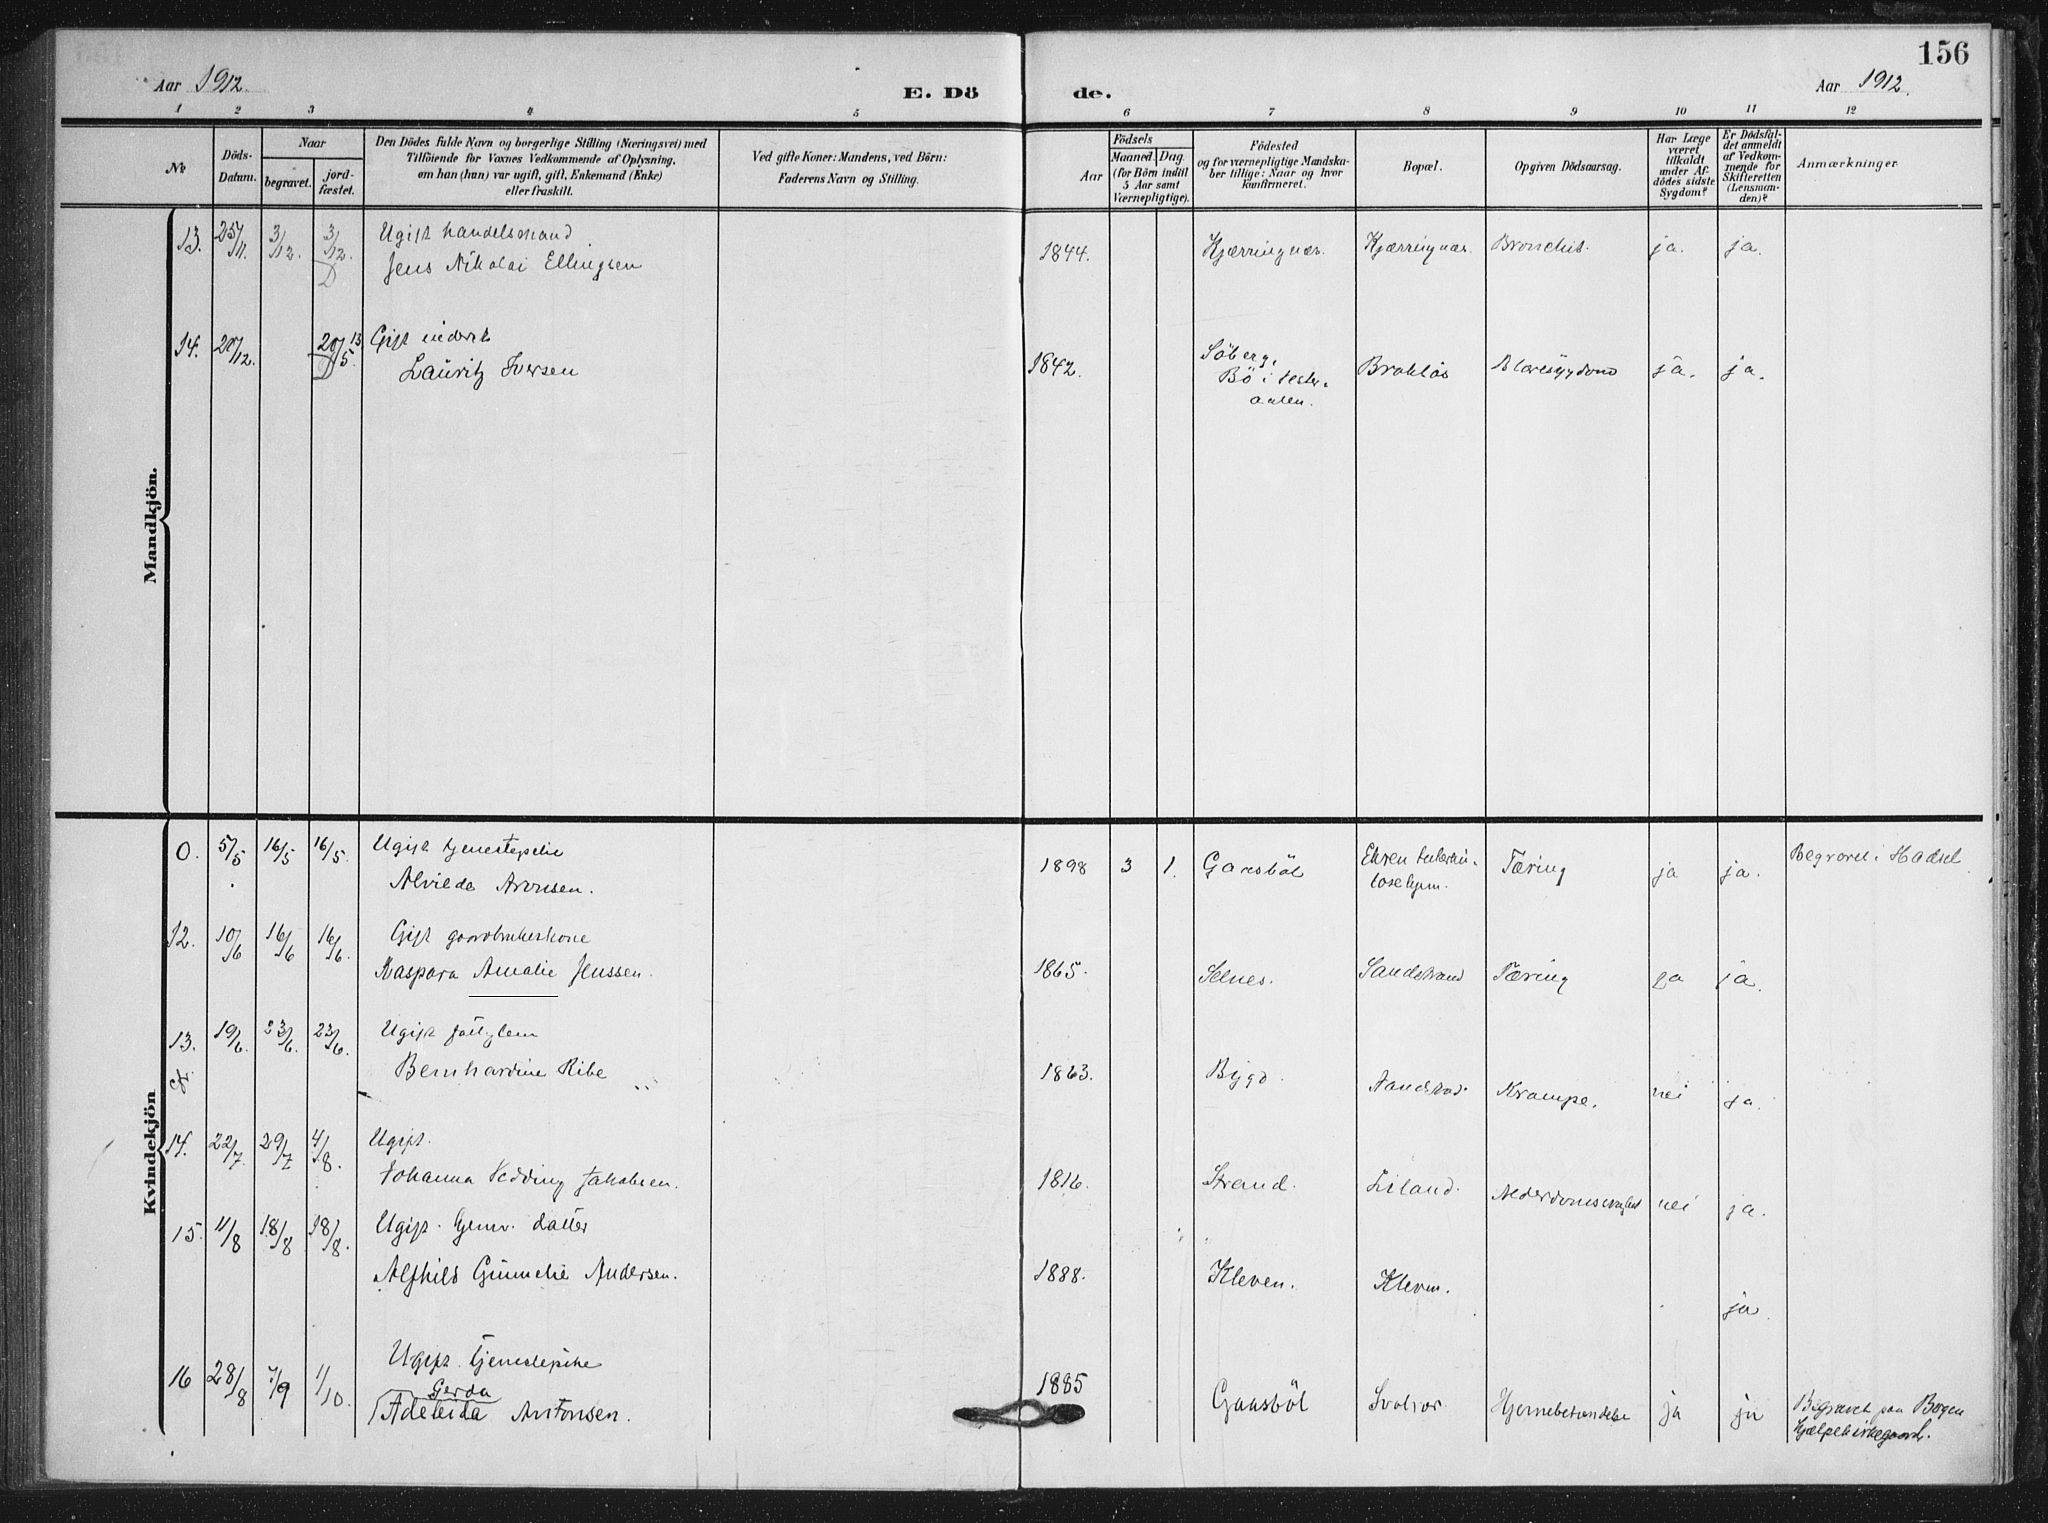 156
Aar 1912. E. Dö de. Aar 1912.
1 2 3 4 5 6 7 8 9 10 11 12
№
Döds-
Datum.
Naar
begravet.
jord-
fæstet.
Den Dödes fulde Navn og borgerlige Stilling (Næringsvei) med
Tilföiende for Voxnes Vedkommende af Oplysning,
om han (hun) var ugift, gift, Enkemand (Enke)
eller fraskilt.
Ved gifte Koner: Mandens, ved Börn:
Faderens Navn og Stilling.
Födsels
Aar
Maaned. Dag.
(for Börn indtil
5 Aar samt
Værnepligtige).
Födested
og for værnepligtige Mandska-
ber tillige: Naar og hvor
konfirmeret.
Bopæl.
Opgiven Dödsaarsag.
Har Læge
været
tilkaldt
under Af-
dödes sidste
Sygdom?
Er Dödsfal-
det anmeldt
af Vedkom-
mende for
Skifteretten
(Lensman-
den)?
Anmærkninger.
Mandkjön.
13. 25/11. 3/12. 3/12. D Ugift handelsmand
Jens Nikolai Ellingsen 1844. Kjærringnæs. Kjærringnæs. Bronchit. ja. ja.
14. 20/12. 20/5 13 D Gift inderst
Lauritz Iversen 1842. Söberg, Bö i Vester-
aalen. Brokløs Blæresygdom ja. ja.
Kvindekjön
0. 5/5 16/5 16/5. Ugift tjenestepike
Alvilde Aronsen. 1898 3 1. Gaasböl Tæring ja ja. Begravet i Hadsel
12. 10/6 16/6 16/6. Gift gaardbrukerkone
Kaspara Amalie Jenssen. 1865. Selnes. Sandstrand Tæring ja ja.
13. 19/6. 23/6. 23/6. Ugift fattiglem
Bernhardine Ribe 1863. Bygd. Sandstrd. Krampe. nei ja.
14. 22/7. 29/7 4/8. Ugift.
Johanna Hedding Jakobsen. 1816. Strand. Liland. Alderdomssvaghed nei ja.
15. 11/8 18/8 18/8. Ugift. Gjmv. datter
Alfhild Gunnelie Andersen. 1888. Kleven. Kleven. ja
16 28/8 7/9 1/10 Ugift tjenestepike
Gerda
(Adeleida Antonsen. 1885 Gaasböl Svolvær Hjernebetændelse ja ja Begravet paa Bogen
Hjælpekirkegaard.